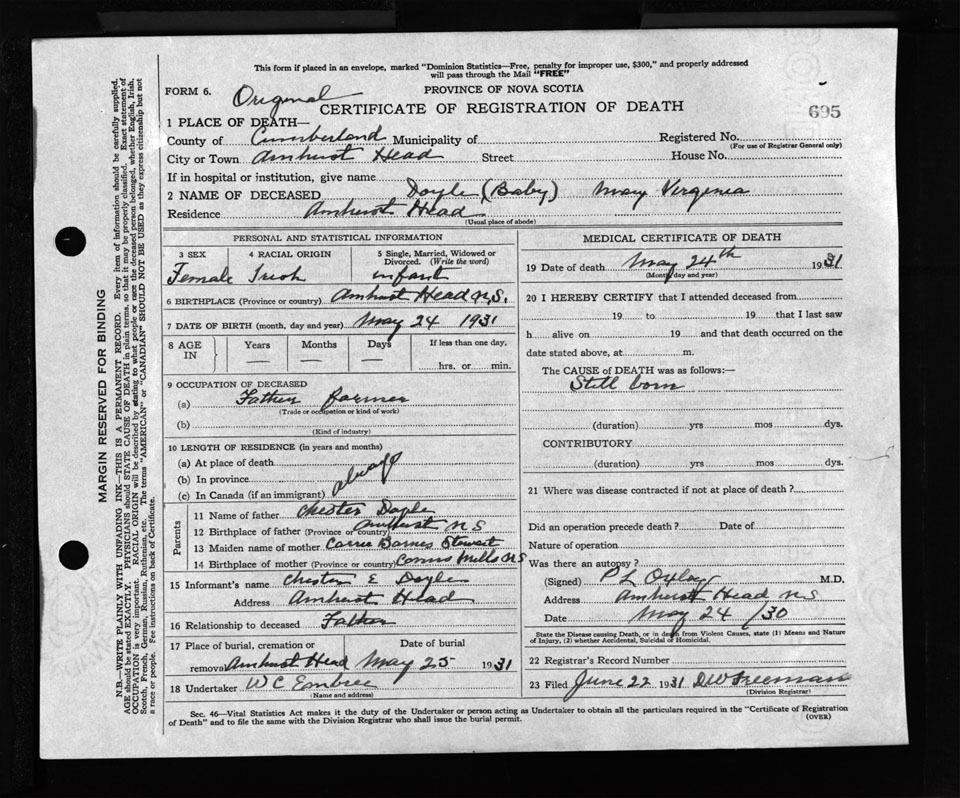 This form if placed in an envelope, marked "Dominion Statistics—Free, penalty for improper use, $300," and properly addressed
will pass through the Mail "FREE"
FORM 6. Original PROVINCE OF NOVA SCOTIA
CERTIFICATE OF REGISTRATION OF DEATH 695
1 PLACE OF DEATH—
County of Cumberland Municipality of Registered No.
(For use of Registrar General only)
City or Town Amhurst Head Street House No.
If in hospital or institution, give name
2 NAME OF DECEASED Doyle (Baby) Mary Virginia
Residence Amherst Head
(Usual place of abode)
PERSONAL AND STATISTICAL INFORMATION
3 SEX 4 RACIAL ORIGIN 5 Single, Married, Widowed or
Divorced. (Write the word)
Female Irish infant
6 BIRTHPLACE (Province or country) Amhurst Head N.S.
7 DATE OF BIRTH (month, day and year) May 24 1931
8 AGE IN Years Months Days If less than one day,
— — — hrs. or min.
9 OCCUPATION OF DECEASED
(a) Father Farmer
(Trade or occupation or kind of work)
(b)
(Kind of industry)
10 LENGTH OF RESIDENCE (in years and months)
(a) At place of death
(b) In province always
(c) In Canada (if an immigrant)
Parents
11 Name of father Chester Doyle
12 Birthplace of father (Province or country) Amhurst N S
13 Maiden name of mother Carrie Barnes Stewart
14 Birthplace of mother (Province or country) Mills N S
15 Informant's name Chester E Doyle
Address Amhurst Head
16 Relationship to deceased Father
17 Place of burial, cremation or Date of burial
removal Amhurst Head May 25 1931
18 Undertaker W C Embree
(Name and address)
MEDICAL CERTIFICATE OF DEATH
19 Date of death May 24th 1931
(Month, day and year)
20 I HEREBY CERTIFY that I attended deceased from
19 to 19 that I last saw
h alive on 19 and that death occurred on the
date stated above, at m.
The CAUSE of DEATH was as follows:—
Still born
(duration) yrs mos dys.
CONTRIBUTORY
(duration) yrs mos dys.
21 Where was disease contracted if not at place of death?
Did an operation precede death? Date of
Nature of operation
Was there an autopsy?
(Signed) P L M.D.
Address Amherst Head N S
Date May 24 /30
State the Disease causing Death, or in death from Violent Causes, state (1) Means and Nature
of Injury, (2) whether Accidental, Suicidal or Homicidal.
22 Registrar's Record Number
23 Filed June 22 1931 D W Freeman
(Division Registrar)
Sec. 46—Vital Statistics Act makes it duty of the Undertaker or person acting as Undertaker to obtain all the particulars required in the "Certificate of Registration
of Death" and to file the same with the Division Registrar who shall issue the burial permit. (OVER)
MARGIN RESERVED FOR BINDING
N.B.—WRITE PLAINLY WITH UNFADING INK—THIS IS A PERMANENT RECORD. Every item of information should be carefully supplied.
AGE should be stated EXACTLY. PHYSICIANS should STATE CAUSE OF DEATH in plain terms, so that it may be properly classified. Exact statement of
OCCUPATION is very important. RACIAL ORIGIN will be described by stating to what people or race the deceased person belonged, whether English, Irish,
Scotch, French, German, Russian, Ruthenian, etc. The terms "AMERICAN" or "CANADIAN" SHOULD NOT BE USED as they express citizenship but not
a race or people. See instructions on back of Certificate.